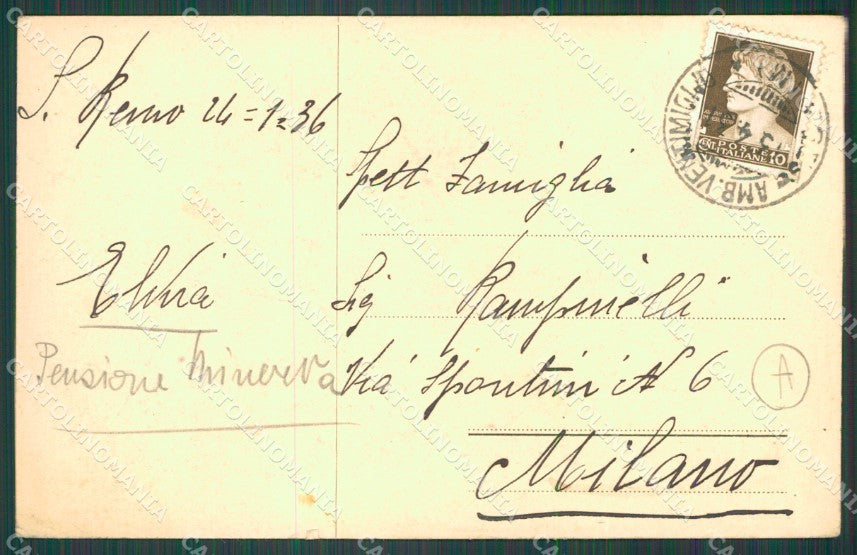 S. Remo 24=1=36
Elvira
Pensione Minerva
Spett Famiglia
Sig Rampinelli
Via Spontini N 6
Milano
A
POSTE
ITALIANE
AMB. VENTIMIGLIA
CARTOLINOMANIA